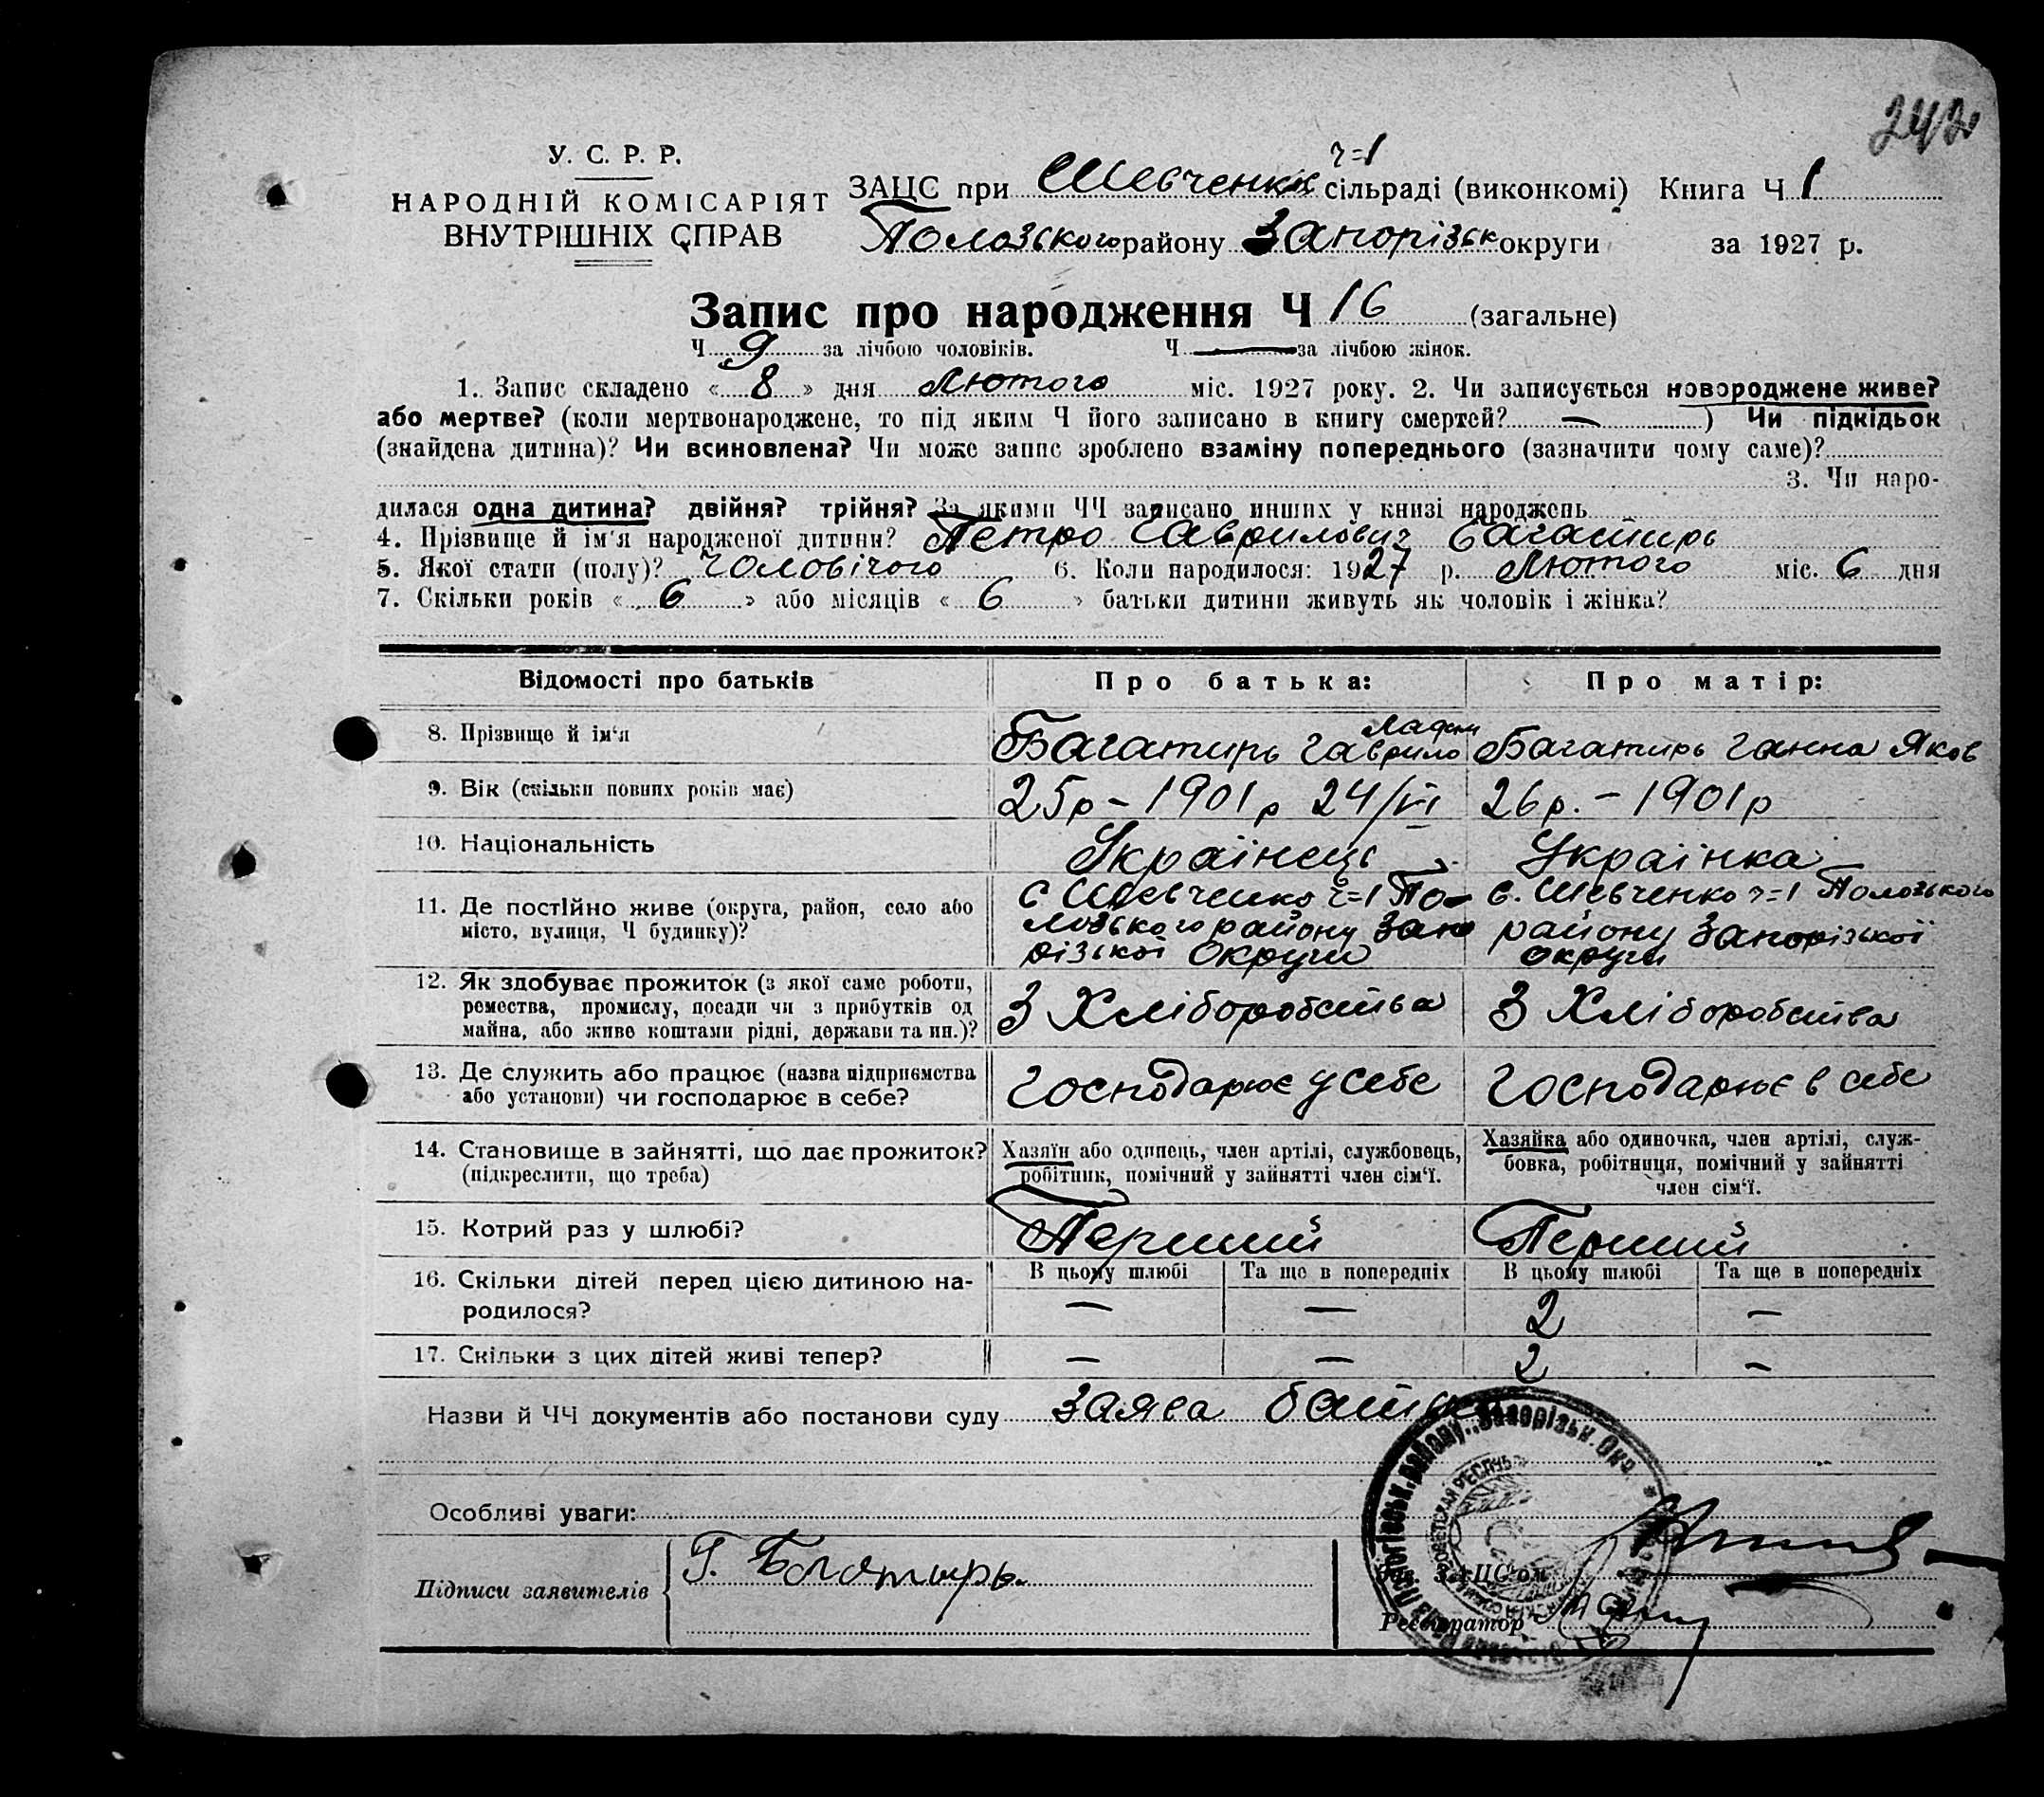 242
У. С. Р. Р.
НАРОДНІЙ КОМІСАРІЯТ
ВНУТРІШНІХ СПРАВ
ч=1
ЗАЦС при Шевченків сільраді (виконкомі) Книга Ч 1
Пологзького району Запорізьк округи за 1927 р.
Запис про народження Ч 16 (загальне)
Ч 9 за лічбою чоловіків. Ч — за лічбою жінок.
1. Запис складено « 8 » дня Лютого міс. 1927 року. 2. Чи записується новороджене живе?
або мертве? (коли мертвонароджене, то під яким Ч його записано в книгу смертей? — ) Чи підкідьок
(знайдена дитина)? Чи всиновлена? Чи може запис зроблено взаміну попереднього (зазначити чому саме)?
3. Чи наро-
дилася одна дитина? двійня? трійня? За якими ЧЧ записано инших у книзі народжень
4. Прізвище й ім'я народженої дитини? Петро Гаврилович Багатирь
5. Якої стати (полу)? Чоловічого 6. Коли народилося: 1927 р. Лютого міс. 6 дня
7. Скільки років « 6 » або місяців « 6 » батьки дитини живуть як чоловік і жінка?
Відомості про батьків Про батька: Про матір:
8. Прізвище й ім'я Багатирь Гаврило Багатирь Ганна Яков
9. Вік (скільки повних років має) 25р – 1901р 24/VI 26р. – 1901р
10. Національність Українець Українка
11. Де постійно живе (округа, район, село або с Шевченко ч=1 По- с. Шевченко ч=1 Пологзького
місто, вулиця, Ч будинку)? лозького району Запо району Запорізької
різької Округи округи
12. Як здобуває прожиток (з якої саме роботи,
ремества, промислу, посади чи з прибутків од З Хліборобства З Хліборобства
майна, або живе коштами рідні, держави та ин.)?
13. Де служить або працює (назва підприємства Господарює у себе Господарює в себе
або установи) чи господарює в себе?
14. Становище в зайнятті, що дає прожиток? Хазяїн або одинець, член артілі, службовець, Хазяйка або одиночка, член артілі, служ-
(підкреслити, що треба) робітник, помічний у зайнятті член сім'ї. бовка, робітниця, помічний у зайнятті
член сім'ї.
15. Котрий раз у шлюбі? Перший Перший
16. Скільки дітей перед цією дитиною на- В цьому шлюбі Та ще в попередніх В цьому шлюбі Та ще в попередніх
родилося? — — 2 —
17. Скільки з цих дітей живі тепер? — — 2 —
Назви й ЧЧ документів або постанови суду Заява батька
Особливі уваги:
Підписи заявителів Г. Багатирь.
Зав. ЗАЦС'ом
Реєстратор